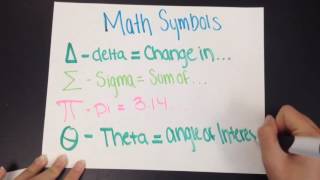 Math Symbols
Δ - delta = Change in...
Σ - Sigma = Sum of...
π - pi = 3.14
Θ - Theta = angle of Interes